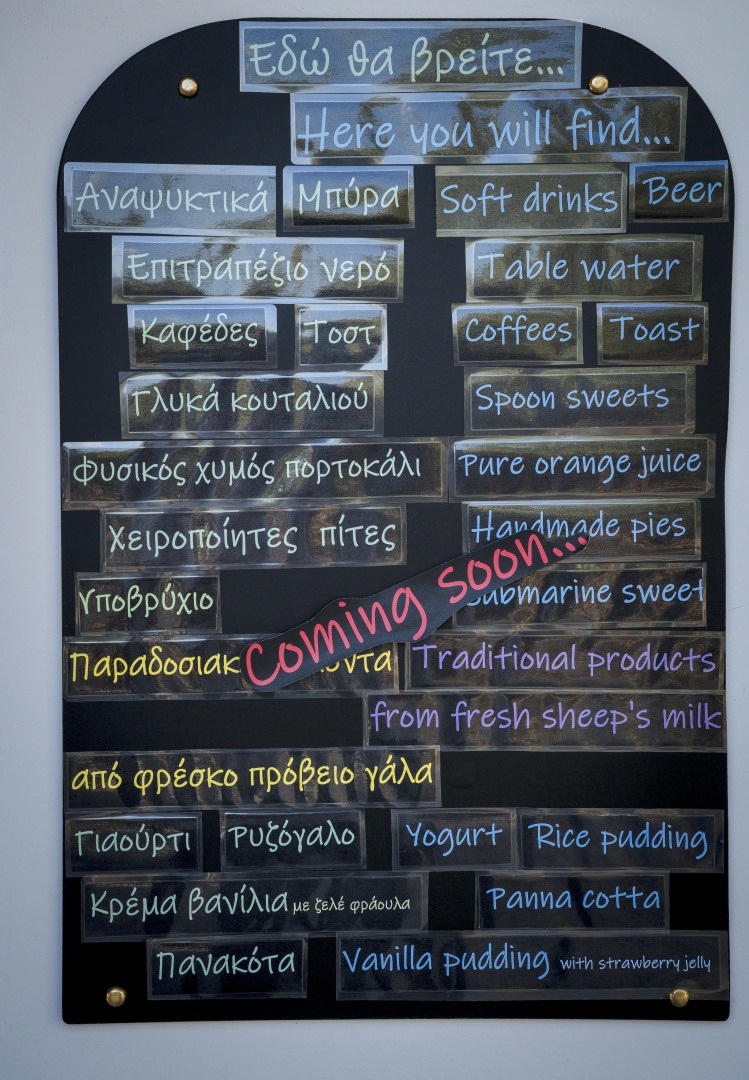 Εδώ θα βρείτε...
Here you will find...
Αναψυκτικά Μπύρα Soft drinks Beer
Επιτραπέζιο νερό Table water
Καφέδες Τοστ Coffees Toast
Γλυκά κουταλιού Spoon sweets
Φυσικός χυμός πορτοκάλι Pure orange juice
Χειροποίητες πίτες Handmade pies
coming soon...
Υποβρύχιο Submarine sweet
Traditional products
from fresh sheep's milk
από φρέσκο πρόβειο γάλα
Γιαούρτι Ρυζόγαλο Yogurt Rice pudding
Κρέμα βανίλια με ζελέ φράουλα Panna cotta
Πανακότα Vanilla pudding with strawberry jelly